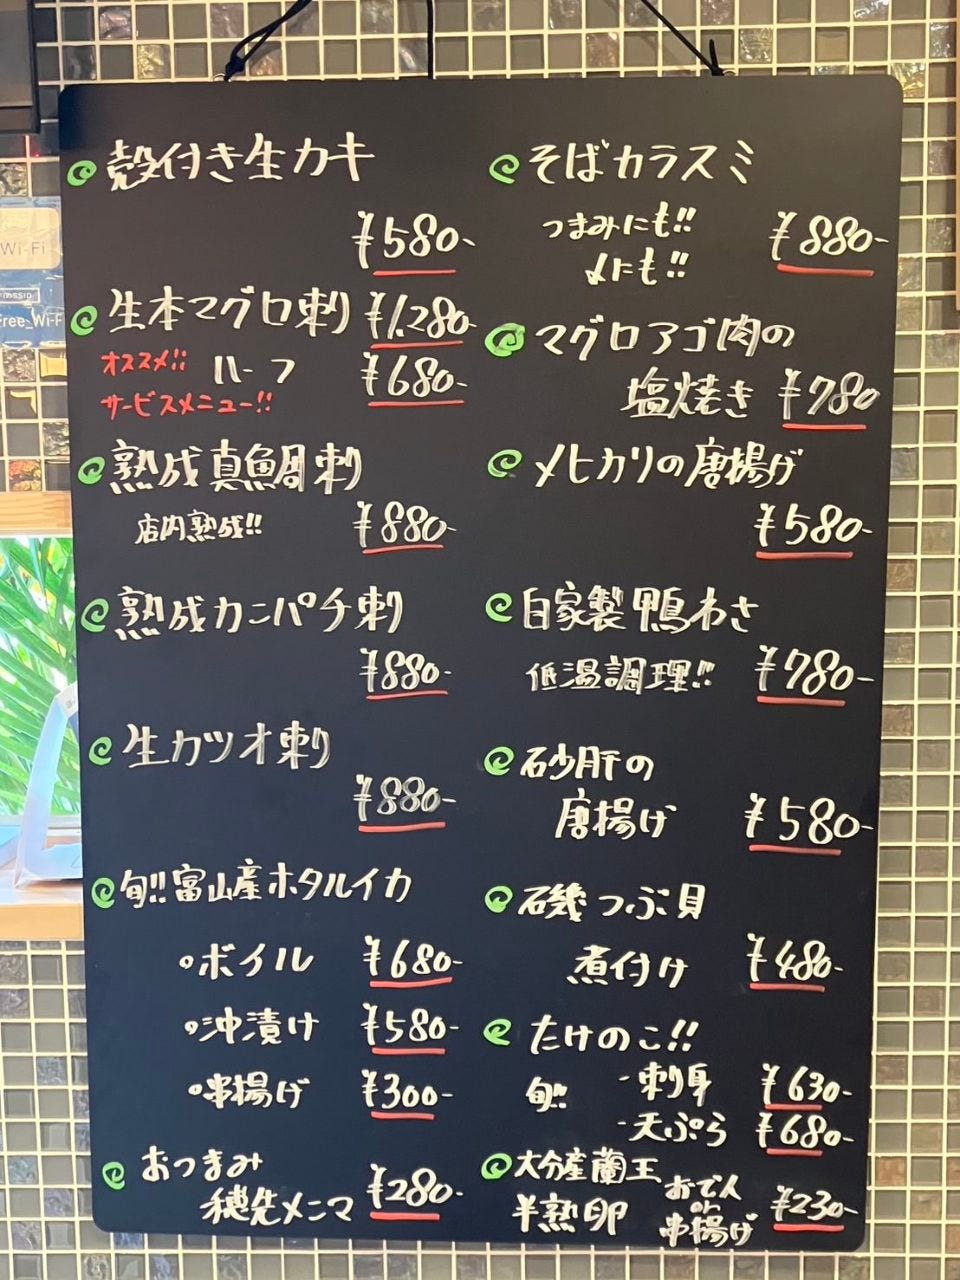 殻付き生カキ
¥580-
生本マグロ刺 ¥1,280-
オススメ!! ハーフ ¥680-
サービスメニュー!!
熟成真鯛刺
店内熟成!! ¥880-
熟成カンパチ刺
¥880-
生カツオ刺
¥880-
旬!!富山産ホタルイカ
・ボイル ¥680-
・沖漬け ¥580-
・串揚げ ¥300-
おつまみ
穂先メンマ ¥280-
そばカラスミ
つまみにも!! ¥880-
〆にも!!
マグロアゴ肉の
塩焼き ¥780
メヒカリの唐揚げ
¥580-
自家製鴨わさ
低温調理!! ¥780-
砂肝の
唐揚げ ¥580-
磯つぶ貝
煮付け ¥480-
たけのこ!!
旬!! -刺身 ¥630-
-天ぷら ¥680-
大分産蘭王
半熟卵 おでん or 串揚げ ¥230-
Wi-Fi
Free-Wi-F